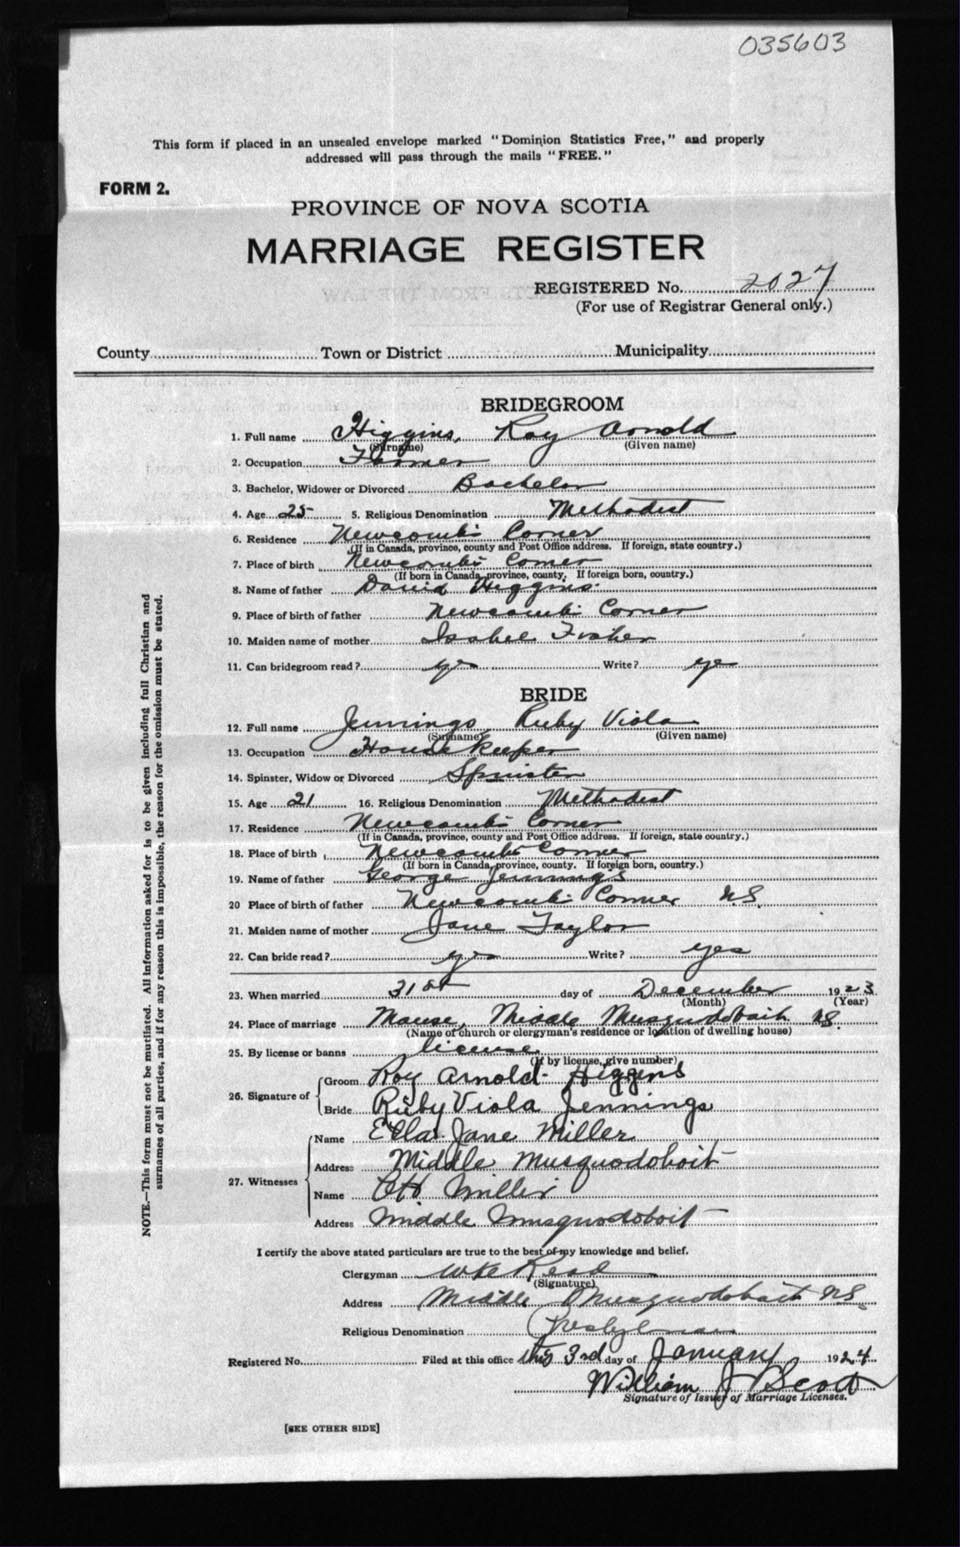 035603
This form if placed in an unsealed envelope marked "Dominion Statistics Free," and properly
addressed will pass through the mails "FREE."
FORM 2.
PROVINCE OF NOVA SCOTIA
MARRIAGE REGISTER
REGISTERED No. 2027
(For use of Registrar General only.)
County Town or District Municipality
BRIDEGROOM
1. Full name Higgins, Roy Arnold
(Surname) (Given name)
2. Occupation Farmer
3. Bachelor, Widower or Divorced Bachelor
4. Age 25 5. Religious Denomination Methodist
6. Residence Newcomb's Corner
(If in Canada, province, county and Post Office address. If foreign, state country.)
7. Place of birth Newcomb's Corner
(If born in Canada, province, county. If foreign born, country.)
8. Name of father David Higgins
9. Place of birth of father Newcomb's Corner
10. Maiden name of mother Isabel Fisher
11. Can bridegroom read? yes Write? yes
BRIDE
12. Full name Jennings Ruby Viola
(Surname) (Given name)
13. Occupation House Keeper
14. Spinster, Widow or Divorced Spinster
15. Age 21 16. Religious Denomination Methodist
17. Residence Newcomb's Corner
(If in Canada, province, county and Post Office address. If foreign, state country.)
18. Place of birth Newcomb's Corner
(If born in Canada, province, county. If foreign born, country.)
19. Name of father George Jennings
20 Place of birth of father Newcomb's Corner NS.
21. Maiden name of mother Jane Taylor
22. Can bride read? yes Write? yes
23. When married 31st day of December 1923
(Month) (Year)
24. Place of marriage Manse, Middle Musquodoboit NS.
(Name of church or clergyman's residence or location of dwelling house)
25. By license or banns license
(If by license, give number)
26. Signature of Groom Roy Arnold Higgins
Bride Ruby Viola Jennings
27. Witnesses Name Ella Jane Miller
Address Middle Musquodoboit
Name Miller
Address Middle Musquodoboit
I certify the above stated particulars are true to the best of my knowledge and belief.
Clergyman Read
(Signature)
Address Middle Musquodoboit NS.
Religious Denomination Presbyterian
Registered No. Filed at this office this 3rd day of January 1924
William J Scott
Signature of Issuer of Marriage Licenses.
[SEE OTHER SIDE]
NOTE.—This form must not be mutilated. All information asked for is to be given including full Christian and
surnames of all parties, and if for any reason this is impossible, the reason for the omission must be stated.